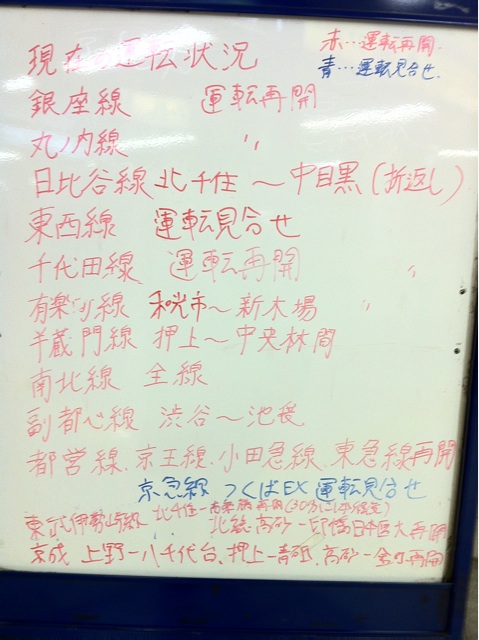 赤…運転再開
青…運転見合せ.
現在の運転状況
銀座線 運転再開
丸ノ内線 〃
日比谷線 北千住〜中目黒(折返し)
東西線 運転見合せ
千代田線 運転再開 〃
有楽町線 和光市〜新木場 〃
半蔵門線 押上〜中央林間
南北線 全線
副都心線 渋谷〜池袋
都営線、京王線、小田急線、東急線再開
京急線 つくばEX 運転見合せ
東武伊勢崎線 北千住ー
北総 高砂ー印旛日本医大再開
京成 上野ー八千代台、押上ー青砥、高砂ー金町再開